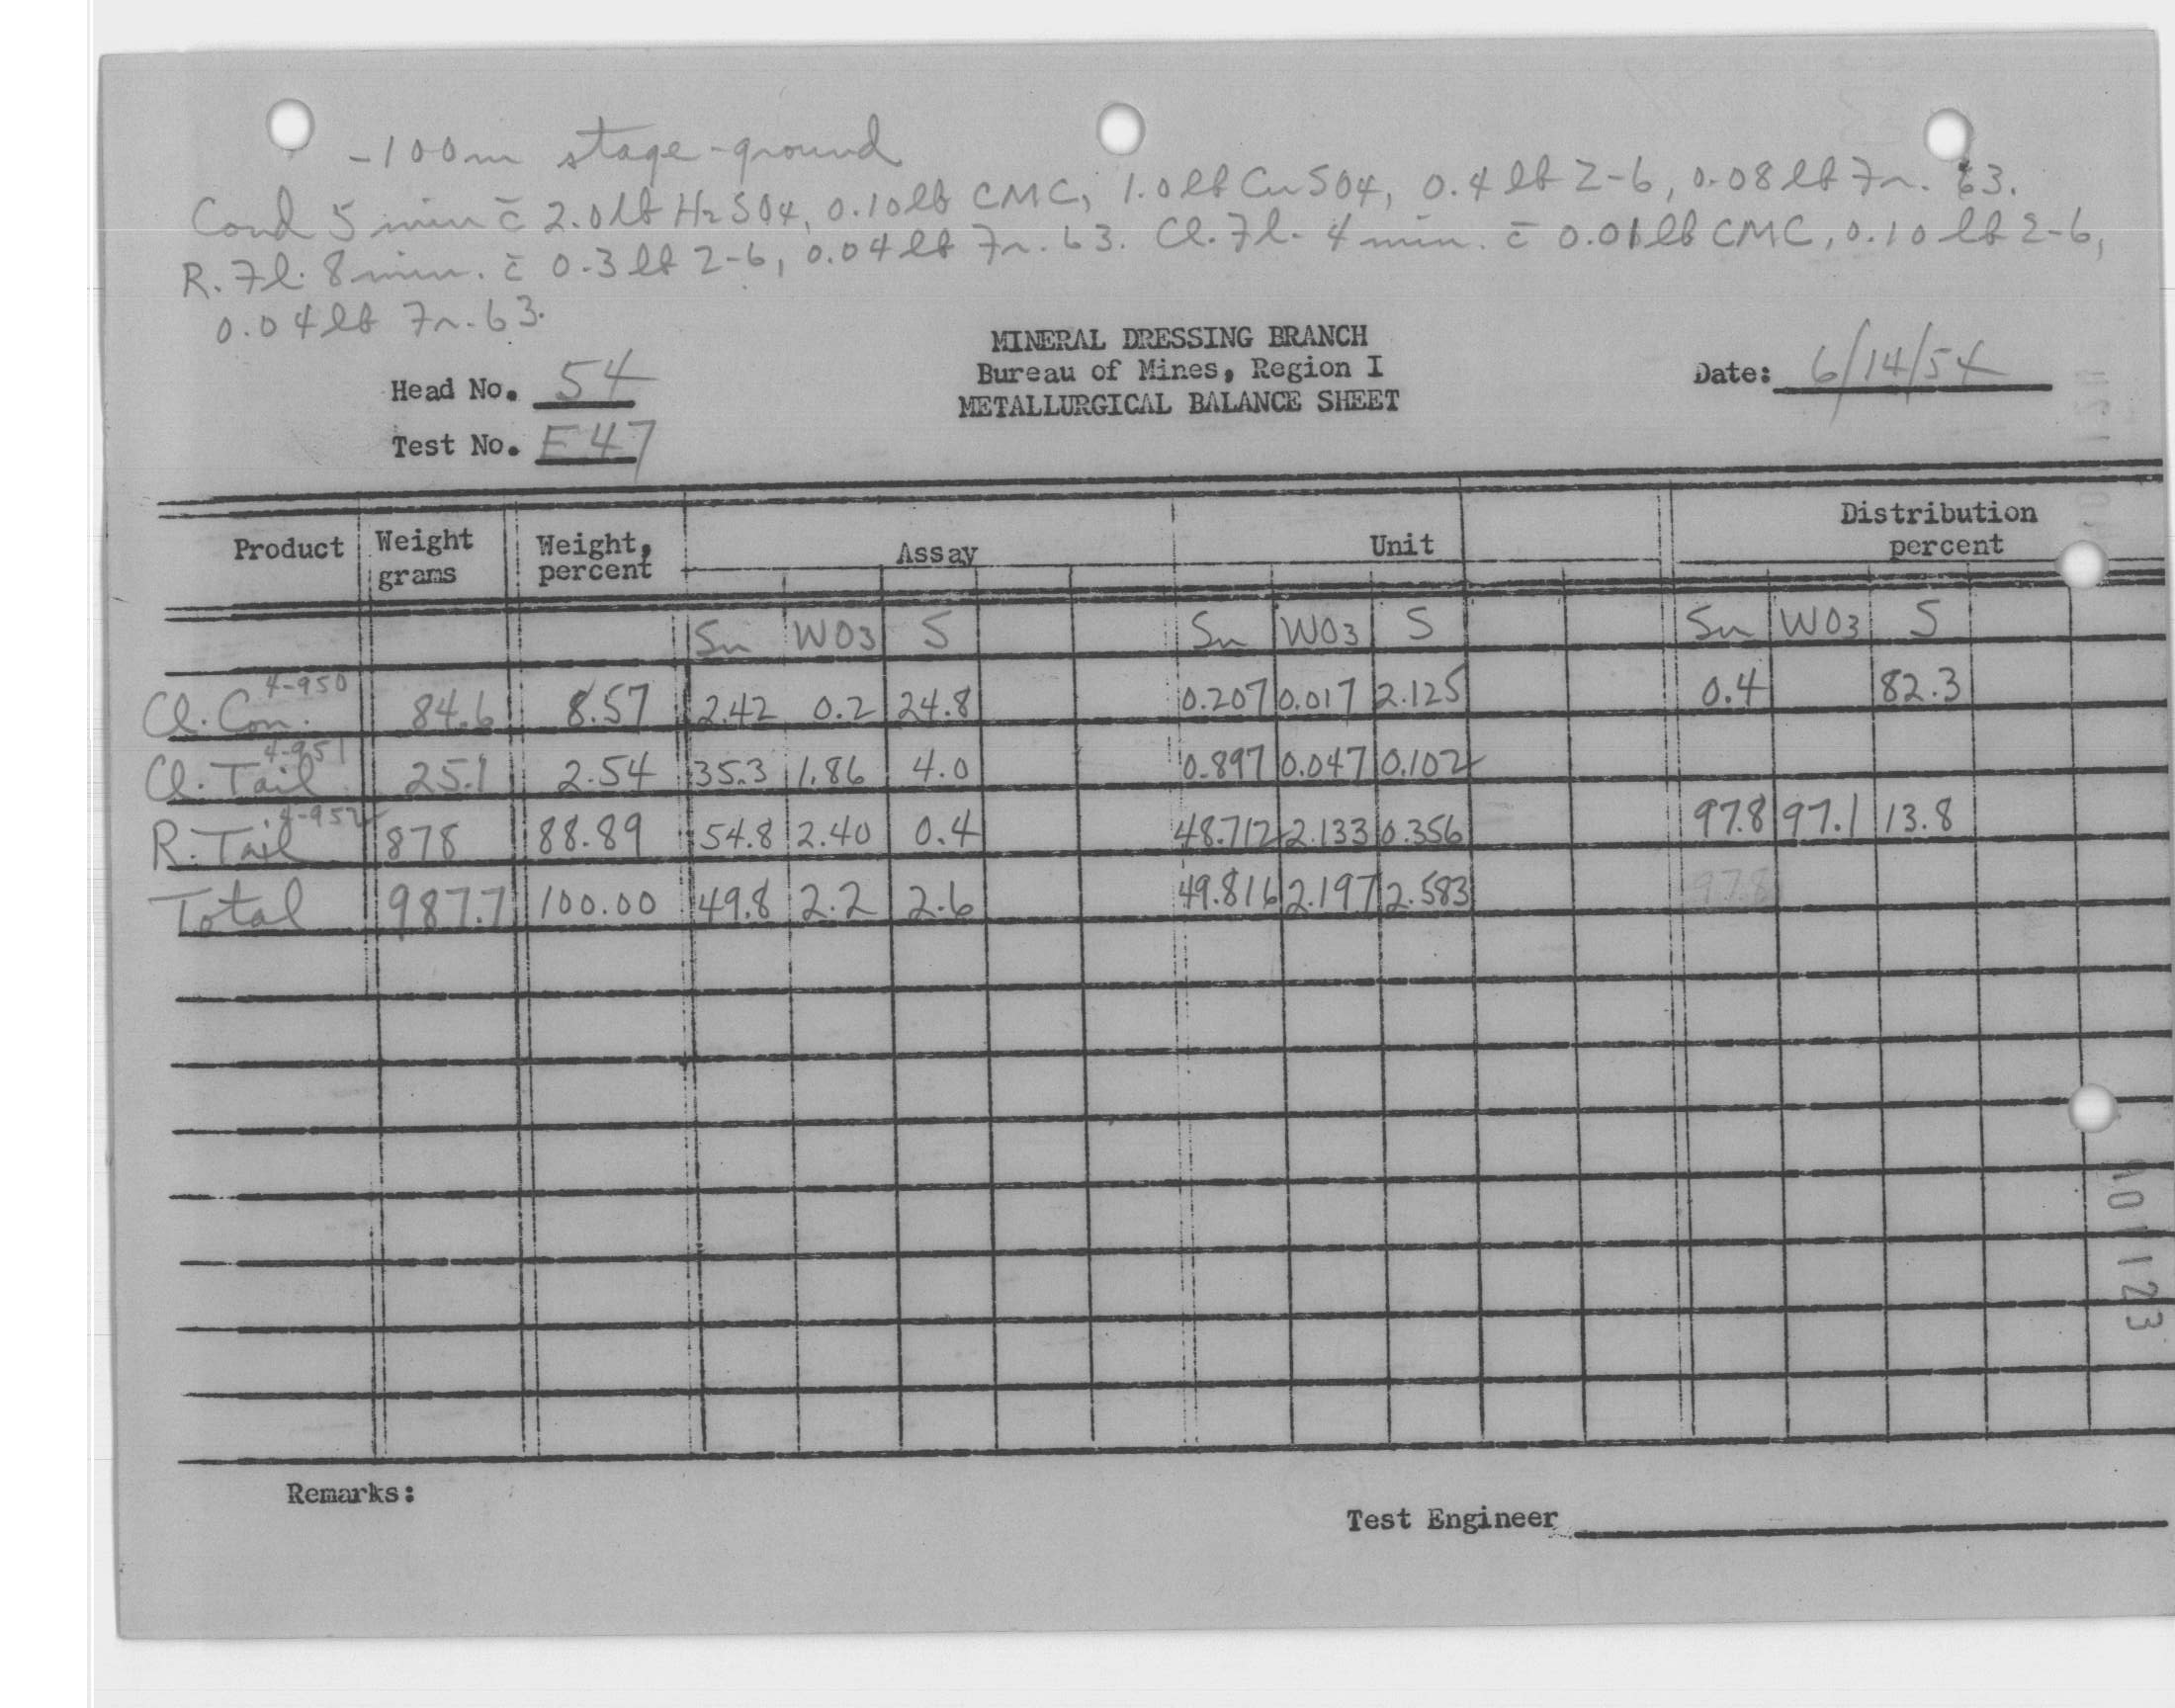 -100m stage-ground
Cond 5 min c̄ 2.0 lb H2SO4, 0.10 lb CMC, 1.0 lb CuSO4, 0.4 lb Z-6, 0.08 lb Fr. 63.
R. Fl. 8 min. c̄ 0.3 lb Z-6, 0.04 lb Fr. 63. Cl. Fl. 4 min. c̄ 0.01 lb CMC, 0.10 lb Z-6,
0.04 lb Fr. 63.
MINERAL DRESSING BRANCH
Bureau of Mines, Region I
METALLURGICAL BALANCE SHEET
Head No. 54
Date: 6/14/54
Test No. E47
Product Weight grams Weight, percent Assay Unit Distribution percent
Sn WO3 S Sn WO3 S Sn WO3 S
Cl. Con. 4-950 84.6 8.57 2.42 0.2 24.8 0.207 0.017 2.125 0.4 82.3
Cl. Tail 4-951 25.1 2.54 35.3 1.86 4.0 0.897 0.047 0.102
R. Tail 4-952 878 88.89 54.8 2.40 0.4 48.712 2.133 0.356 97.8 97.1 13.8
Total 987.7 100.00 49.8 2.2 2.6 49.816 2.197 2.583 97.8
Remarks:
Test Engineer